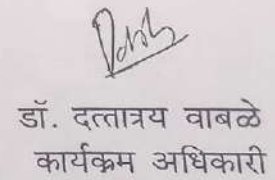 डॉ. दत्तात्रय वाबळे
कार्यक्रम अधिकारी